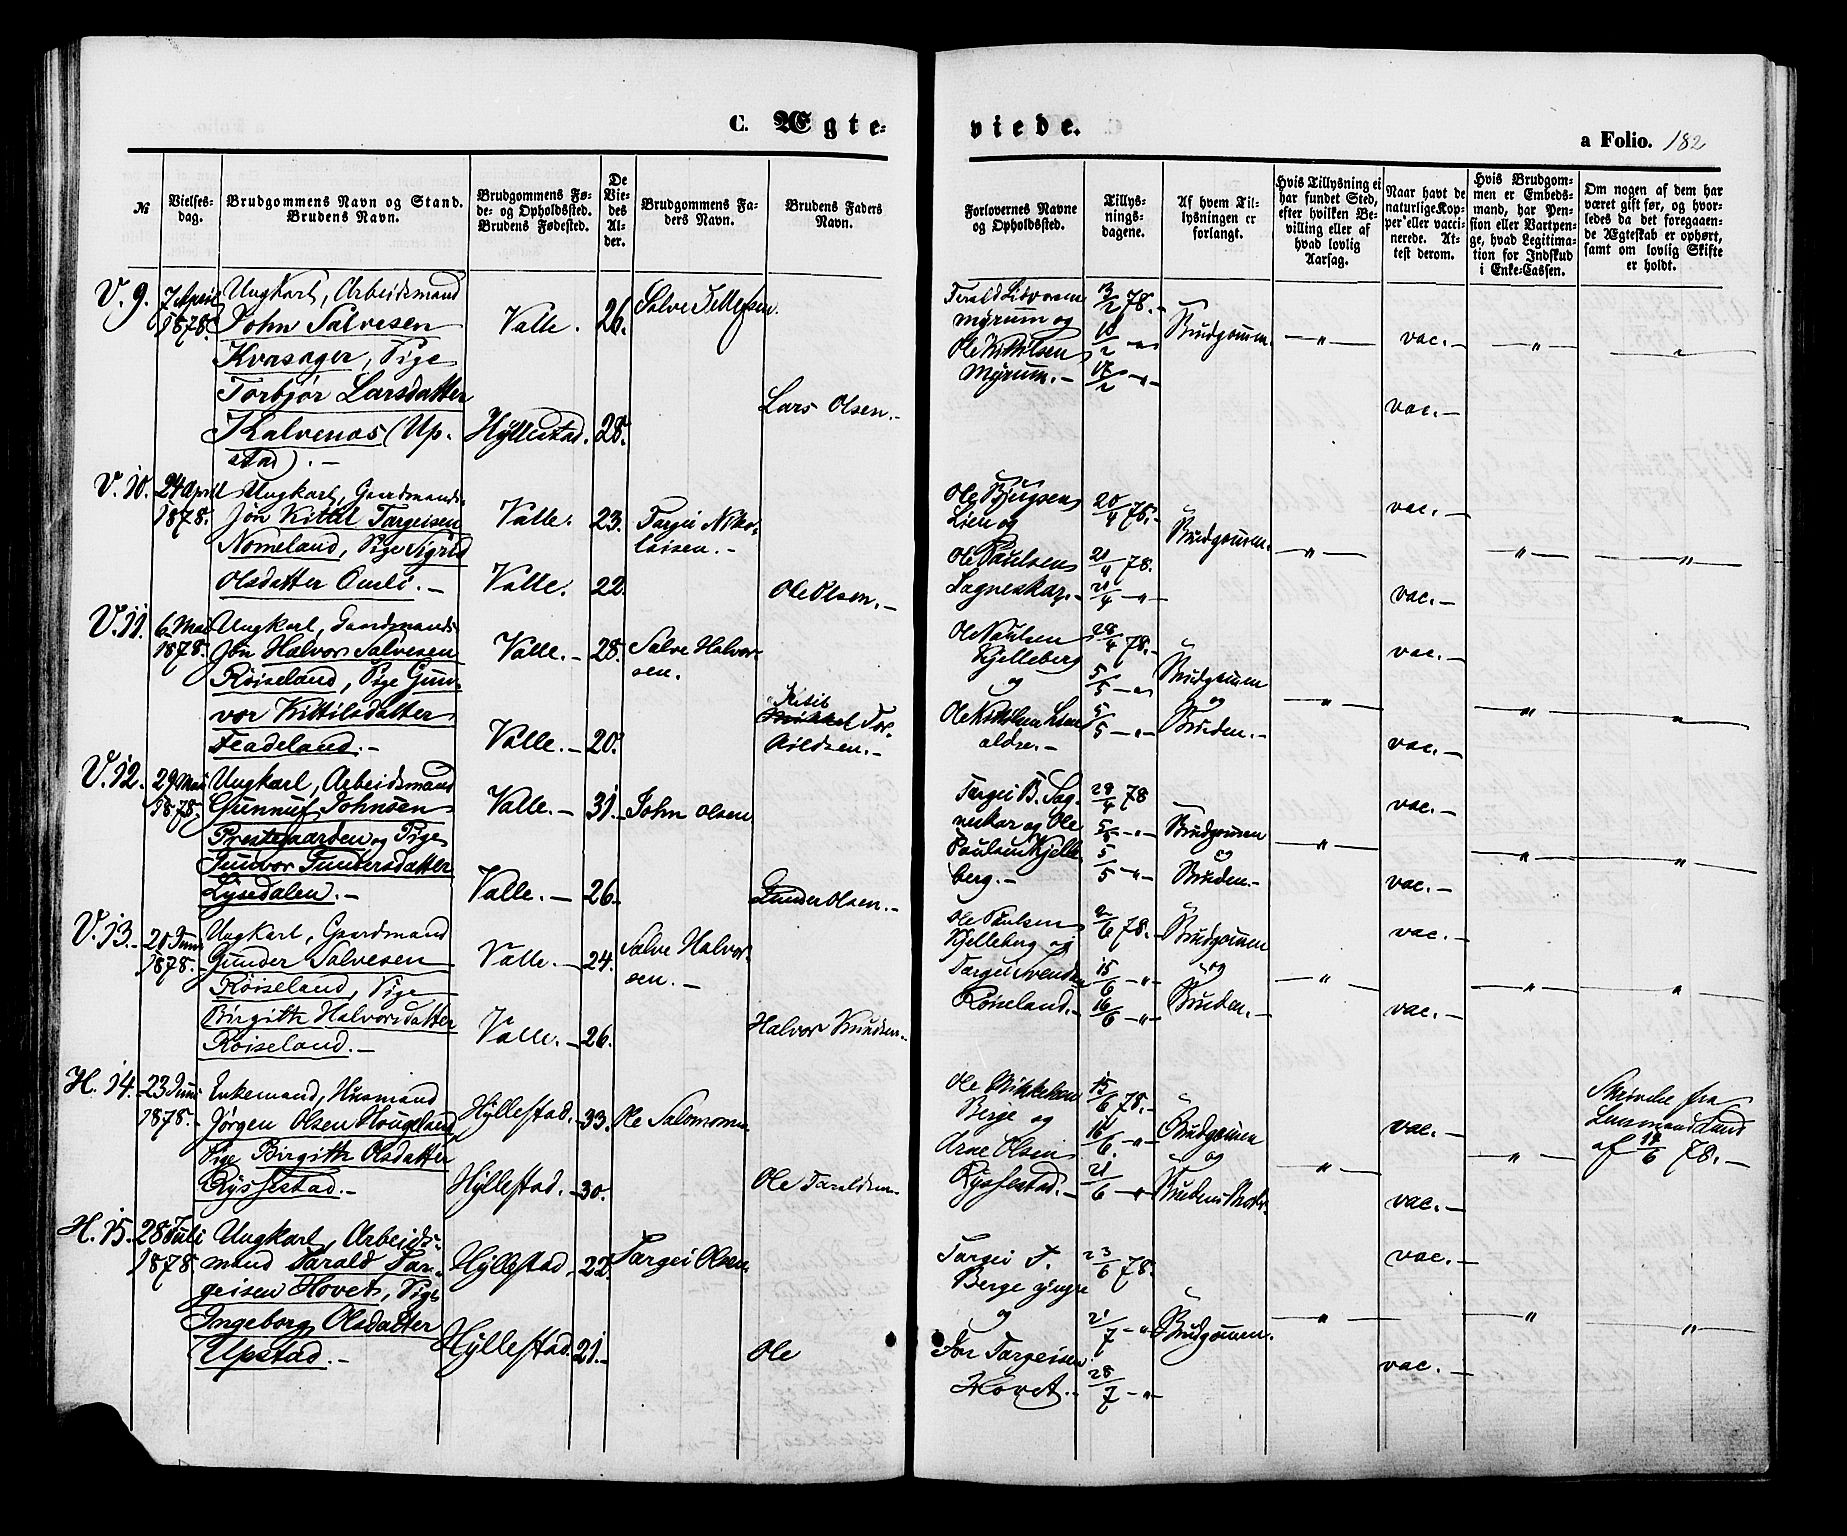 C. Ægte-
viede.
a Folio. 182
№
Vielses-
dag.
Brudgommens Navn og Stand.
Brudens Navn.
Brudgommens Fø-
de- og Opholdssted.
Brudens Fødested.
De
Vie-
des
Al-
der.
Brudgommens Fa-
ders Navn.
Brudens Faders
Navn.
Forlovernes Navne
og Opholdssted.
Tillys-
nings-
dagene.
Af hvem Til-
lysningen er
forlangt.
Hvis Tillysning ei
har fundet Sted,
efter hvilken Be-
villing eller af
hvad lovlig
Aarsag.
Naar havt de
naturlige Kop-
per eller vacci-
nerede. At-
test derom.
Hvis Brudgom-
men er Embeds-
mand, har Pen-
sion eller Vartpen-
ge, hvad Legitima-
tion for Indskud
i Enke-Cassen.
Om nogen af dem har
været gift før, og hvor-
ledes da det foregaaen-
de Ægteskab er ophørt,
samt om lovlig Skifte
er holdt.
V. 9.
7 April
1878.
Ungkarl, Arbeidsmand
John Salvesen
Kvasager, Pige
Torbjør Larsdatter
Kalvenas (Up-
stad). –
Valle.
Hyllestad.
26.
28.
Salve Tellefsen.
Lars Olsen. –
Myrum og
Ole Kittilsen
Myrum. –
13/2 78. –
10/2 – " –
17/2 – " –
Brudgommen.
– " –
vac. –
vac. –
– " –
– " –
V. 10.
24 April
1878.
Ungkarl, Gaardmands-
søn Kittil Targeisen
Nomeland, Pige Sigrid
Olsdatter Omli. –
Valle.
Valle.
23.
22.
Targei Niko-
laisen. –
Ole Olsen. –
Ole Bjugsen
Lien og
Ole Paulsen
Sagneskar. –
20/4 78. –
21/4 78.
21/4 – " –
Brudgommen.
– " –
vac. –
vac. –
– " –
– " –
V. 11.
6. Mai
1878.
Ungkarl, Gaardmands-
søn Halvor Salvesen
Røiseland, Pige Gun-
vor Kittilsdatter
Fladeland. –
Valle. –
Valle. –
28.
20.
Salve Halvor-
sen.
Kitil
Tor-
kildsen. –
Ole Paulsen
Kjelleberg
og
28/4 78. –
5/5 – " –
5/5 – " –
Brudgommen
og
Bruden. –
– " –
vac. –
vac. –
– " –
– " –
V. 12.
29 Mai
1878.
Ungkarl, Arbeidsmand
Gunnuf Johnsen
Prestegaarden og Pige
Gunvor Gundersdatter
Lysedalen. –
Valle. –
Valle. –
31. –
26.
John Olsen
Gunder Olsen. –
Targei B. Sag-
neskar og Ole
Paulsen Kjelle-
berg. –
28/4 78
5/5 – " –
5/5 – " –
Brudgommen
og
Bruden. –
– " –
vac. –
vac. –
– " –
– " –
V. 13. –
20 Juni
1878. –
Ungkarl, Gaardmand
Gunder Salvesen
Røiseland, Pige
Birgith Halvorsdatter
Røiseland. –
Valle. –
Valle. –
24.
26.
Salve Halvor-
sen. –
Halvor Knudsen. –
Ole Paulsen
Kjelleberg og
Targei Svendsen
Røiseland. –
2/6 78. –
15/6 – " –
16/6 – " –
Brudgommen
og
Bruden. –
– " –
vac. –
vac. –
– " –
– " –
H. 14. –
23 Juni
1878. –
Enkemand, Husmand
Jørgen Olsen Hougland
Pige Birgith Olsdatter
Ryssestad. –
Hyllestad. –
Hyllestad. –
33.
30.
Ole Salomons.
Ole Taraldsen –
Ole Mikkelsen
Berge og
Arne Olsen
Ryssestad. –
15/6 78. –
16/6 – " –
21/6 – " –
Brudgommen
og
– " –
vac. –
vac. –
– " –
Skrivelse fra
Lensmand Lund
af 18/6 78. –
H. 15. –
28 Juli
1878.
Ungkarl, Arbeids-
mand Tarald Tar-
geisen Hovet, Pige
Ingeborg Olsdatter
Upstad. –
Hyllestad. –
Hyllestad.
22.
21. –
Targei Olsen.
Ole
Targei T.
Berge yngre
og
Jon Targeisen
Hovet. –
23/6 78.
21/7 – " –
28/7 – " –
Brudgommen.
– " –
vac. –
vac. –
– " –
– " –